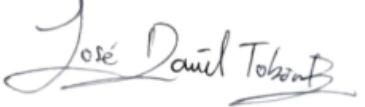 José Daniel Tobón B